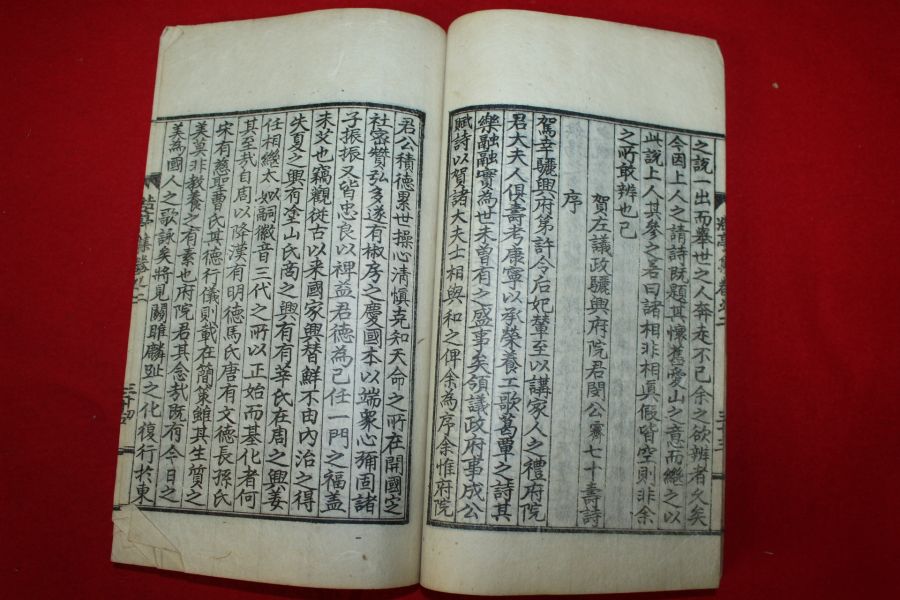 之說一出而擧世之人奔走不已余之欲辨者久矣
今因上人之請詩旣題其懷舊愛山之意而繼之以
此說上人其參之若曰諸相非相眞假皆空則非余
之所敢辨也已
賀左議政驪興府院君閔公霽七十壽詩
序
駕幸驪興府第許令后妃輦至以講家人之禮府院
君大夫人俱壽考康寧以承榮養工歌葛覃之詩其
樂融融實爲世未曾有之盛事矣領議政府事成公
賦詩以賀諸大夫士相與和之俾余爲序余惟府院
君公積德累世操心清愼克知天命之所在開國定
社密贊弘多遂有椒房之慶國本以端衆心彌固諸
子振振又皆忠良以裨益君德爲己任一門之福蓋
未艾也竊觀從古以來國家興替鮮不由內治之得
失夏之興有塗山氏商之興有有莘氏在周之興姜
任相繼太姒嗣徽音三代之所以正始而基化者何
其至哉自周以降漢有明德馬氏唐有文德長孫氏
宋有慈聖曹氏其德行儀則載在簡策雖其生質之
美莫非敎養之有素也府院君其念哉旣有今日之
美爲國人之歌詠矣將見關雎麟趾之化復行於東